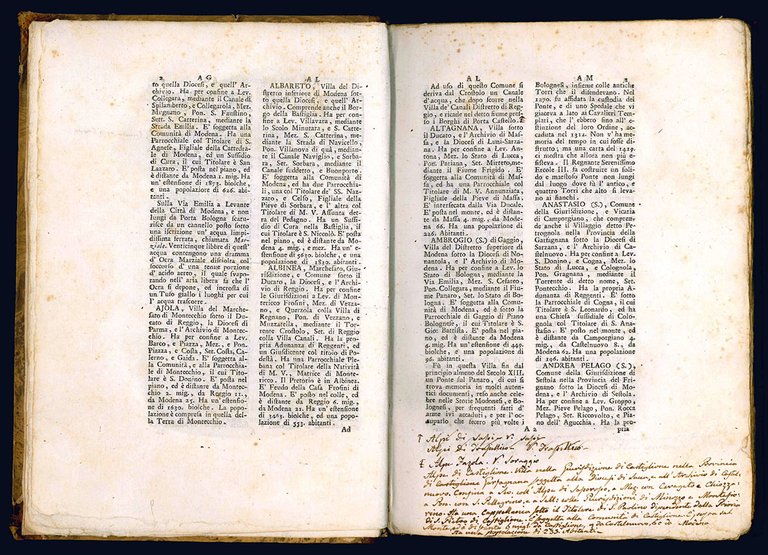 2 AG
to quella Diocesi, e quell' Ar-
chivio. Ha per confine a Lev.
Collegara, mediante il Canale di
Spilamberto, e Collegarola, Mez.
Mugnano, Pon. S. Faustino,
Sett. S. Catterina, mediante la
Strada Emilia. E' soggetta alla
Comunità di Modena. Ha una
Parrocchiale col Titolare di S.
Agnese, Figliale della Cattedra-
le di Modena, ed un Sussidio
di Cura, il cui Titolare è San
Lazzaro. E' posta nel piano, ed
è distante da Modena 1. mig. Ha
un' estensione di 1873. bioiche,
e una popolazione di 626. abi-
tanti.
Sulla Via Emilia a Levante
della Città di Modena, e non
lungi da Porta Bologna scatu-
risce da un cannello posto sotto
una iscrizione un' acqua limpi-
dissima ferrata, chiamata Mar-
ziale. Venticinque libbre di quest'
acqua contengono una dramma
d' Ocra Marziale disciolta col
soccorso d' una tenue porzione
d' acido aereo, il quale svapo-
rando nell' aria libera fa che l'
Ocra si depone, ed incrosta di
un Tufo giallo i luoghi per cui
l' acqua trascorre.
AJOLA, Villa del Marche-
sato di Montecchio sotto il Du-
cato di Reggio, la Diocesi di
Parma, e l' Archivio di Montec-
chio. Ha per confine a Lev.
Barco, e Piazza, Mez., e Pon.
Piazza, e Costa, Set. Costa, Ca-
lerno, e Gaida. E' soggetta al-
la Comunità, e alla Parrocchia-
le di Montecchio, il cui Titola-
re è S. Donino. E' posta nel
piano, ed è distante da Montec-
chio 2. mig., da Reggio 11.,
da Modena 25. Ha un' estensio-
ne di 1630. bioiche. La popo-
lazione è compresa in quella del-
la Terra di Montecchio.
AL
ALBARETO, Villa del Di-
stretto inferiore di Modena sot-
to quella Diocesi, e quell' Ar-
chivio. Comprende anche il Bor-
go della Bastiglia. Ha per con-
fine a Lev. Villavara, mediante
lo Scolo Minutara, e S. Catte-
rina, Mez. S. Catterina, me-
diante la Strada di Navicello,
Pon. Villanova di quà, median-
te il Canale Naviglio, e Sorba-
ra, Set. Sorbara, mediante il
Canale suddetto, e Buonporto.
E' soggetta alla Comunità di
Modena, ed ha due Parrocchia-
li, una col Titolare de' SS. Naz-
zaro, e Celso, Figliale della
Pieve di Sorbara, e l' altra col
Titolare di M. V. Assunta det-
ta del Pedagno. Ha un Sussi-
dio di Cura nella Bastiglia, il
cui Titolare è S. Niccolò. E' posta
nel piano, ed è distante da Mo-
dena 4. mig., e mez. Ha un' e-
stensione di 9630. bioiche, e una
popolazione di 1830. abitanti.
ALBINEA, Marchesato, Giu-
risdizione, e Comune sotto il
Ducato, la Diocesi, e l' Archi-
vio di Reggio. Ha per confine
le Giurisdizioni a Lev. di Mon-
tericco Frosini, Mez. di Vezza-
no, e Querzola colla Villa di
Regnano, Pon. di Vezzano, e
Muzzatella, mediante il Tor-
rente Crostolo, Set. di Reggio
colla Villa Canali. Ha la pro-
pia Adonanza di Reggenti, ed
un Giusdicente col titolo di Pode-
stà. Ha una Parrocchiale Ple-
bana col Titolare della Natività
di M. V., Matrice di Monte-
ricco. Il Pretorio è in Albinea.
E' Feudo della Casa Frosini di
Modena. E' posto nel colle, ed
è distante da Reggio 6. mig.,
da Modena 21. Ha un' estensione
di 3463. bioiche, ed una popola-
zione di 553. abitanti.
Ad
AL
Ad uso di questo Comune si
deriva dal Crostolo un Canale
d' acqua, che dopo scorse nella
Villa de' Canali Distretto di Reg-
gio, e ricade nel detto fiume pres-
so i Borghi di Porta Castello.
ALTAGNANA, Villa sotto
il Ducato, e l' Archivio di Mas-
sa, e la Diocesi di Luni-Sarza-
na. Ha per confine a Lev. An-
tona, Mez. lo Stato di Lucca,
Pon. Pariana, Set. Mirteto, me-
diante il Fiume Frigido. E'
soggetta alla Comunità di Mas-
sa, ed ha una Parrocchiale col
Titolare di M. V. Annunziata,
Figliale della Pieve di Massa.
E' intersecata dalla Via Vecale.
E' posta nel monte, ed è distan-
te da Massa 4. mig., da Mode-
na 66. Ha una popolazione di
226. abitanti.
AMBROGIO (S.) di Gaggio,
Villa del Distretto superiore di
Modena sotto la Diocesi di No-
nantola, e l' Archivio di Mode-
na. Ha per confine a Lev. lo
Stato di Bologna, mediante la
Via Emilia, Mez. S. Cesario,
Pon. Collegara, mediante il Fiu-
me Panaro, Set. lo Stato di Bo-
logna. E' soggetta alla Comu-
nità di Modena, ed è sotto la
Parrocchiale di Gaggio di Piano
Bolognese, il cui Titolare è S.
Gio: Battista. E' posta nel pia-
no, ed è distante da Modena
4. mig. Ha un' estensione di 446.
bioiche, e una popolazione di
96. abitanti.
Fu in questa Villa fin dal
principio almeno del Secolo XIII.
un Ponte sul Panaro, di cui si
trova memoria in molti auten-
tici documenti, reso anche cele-
bre nelle Storie Modenesi, e Bo-
lognesi, per frequenti fatti d'
arme ivi accaduti, e per l' oc-
cuparsi che fecero più volte i
A 2
AM 3
Bolognesi, insieme colle antiche
Torri che il difendevano. Nel
1270. fu affidata la custodia del
Ponte, e di uno Spedale che vi
giaceva a lato ai Cavalieri Tem-
plari, che l' ebbero fino all' e-
stinzione del loro Ordine, ac-
caduta nel 1312. Non v'ha me-
moria del tempo in cui fosse di-
strutto, ma una carta del 1425.
ci mostra che allora non più e-
sisteva. Il Regnante Serenissimo
Ercole III. fa costruire un soli-
do e maestoso Ponte non lungi
dal luogo dove fù l' antico, e
quattro Torri che alto si leva-
no ai fianchi.
ANASTASIO (S.), Comune
della Giurisdizione, e Vicaria
di Camporgiano, che compren-
de anche il Villaggio detto Pe-
trognola nella Provincia della
Garfagnana sotto la Diocesi di
Sarzana, e l' Archivio di Ca-
stelnuovo. Ha per confine a Lev.
S. Donino, e Cogna, Mez. lo
Stato di Lucca, e Colognola,
Pon. Gragnana, mediante il
Torrente di detto nome, Set.
Pontecchio. Ha la propria A-
dunanza di Reggenti. E' sotto
la Parrocchiale di Cogna, il cui
Titolare è S. Leonardo, ed ha
una Chiesa sussidiale di Colo-
gnola col Titolare di S. Ana-
stasio. E' posto nel monte, ed
è distante da Camporgiano 4.
mig., da Castelnuovo 8., da
Modena 64. Ha una popolazione
di 246. abitanti.
ANDREA PELAGO (S.),
Comune della Giurisdizione di
Sestola nella Provincia del Fri-
gnano sotto la Diocesi di Mo-
dena, e l' Archivio di Sestola.
Ha per confine a Lev. Groppo,
Mez. Pieve Pelago, Pon. Rocca
Pelago, Set. Riconvolto, e Pia-
no dell' Agucchia. Ha la pro-
pria
Alpi di Sassi V. Sassi
Alpi di Trassilico V. Trassilico
Alpe Fazola. V. Soraggio
Alpe di Castiglione. Villa nella Giurisdizione di Castiglione nella Provincia
di Castiglione Garfagnana soggetta alla Diocesi di Lucca, e all' Archivio di Castel
nuovo. Confina a Lev. coll' Alpe di
a Pon. con S. Pellegrino, e a Sett: colle Giurisdizioni di Minozzo e Montefio-
rino. Ha una Cappellania sotto il Titolare di S. Paolino dipendente dalla Prioria
di S. Pietro di Castiglione. È soggetta alla Comunità di Castiglione
Castiglione, 9 da Castelnuovo, 60 da Modena
Ha una popolazione di 233. Abitanti.